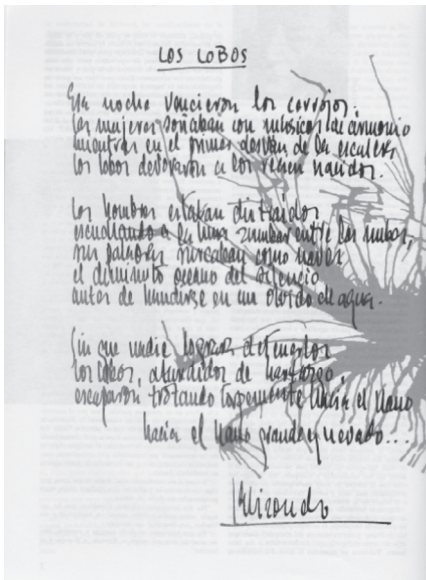 LOS LOBOS
Esa noche vencieron los cerrojos.
Las mujeres soñaban con músicas de armonio
mientras en el primer desván de la escalera
los lobos devoraron a los recien nacidos.
Los hombres estaban distraídos
escuchando a la luna zumbar entre las nubes,
sus surcaban como naves
el diminuto oceano del silencio
antes de hundirse en un olvido de agua.
Sin que nadie lograra detenerlos
los lobos, aturdidos de hartazgo,
escaparon trotando torpemente hacia el llano
hacia el llano grande y nevado...